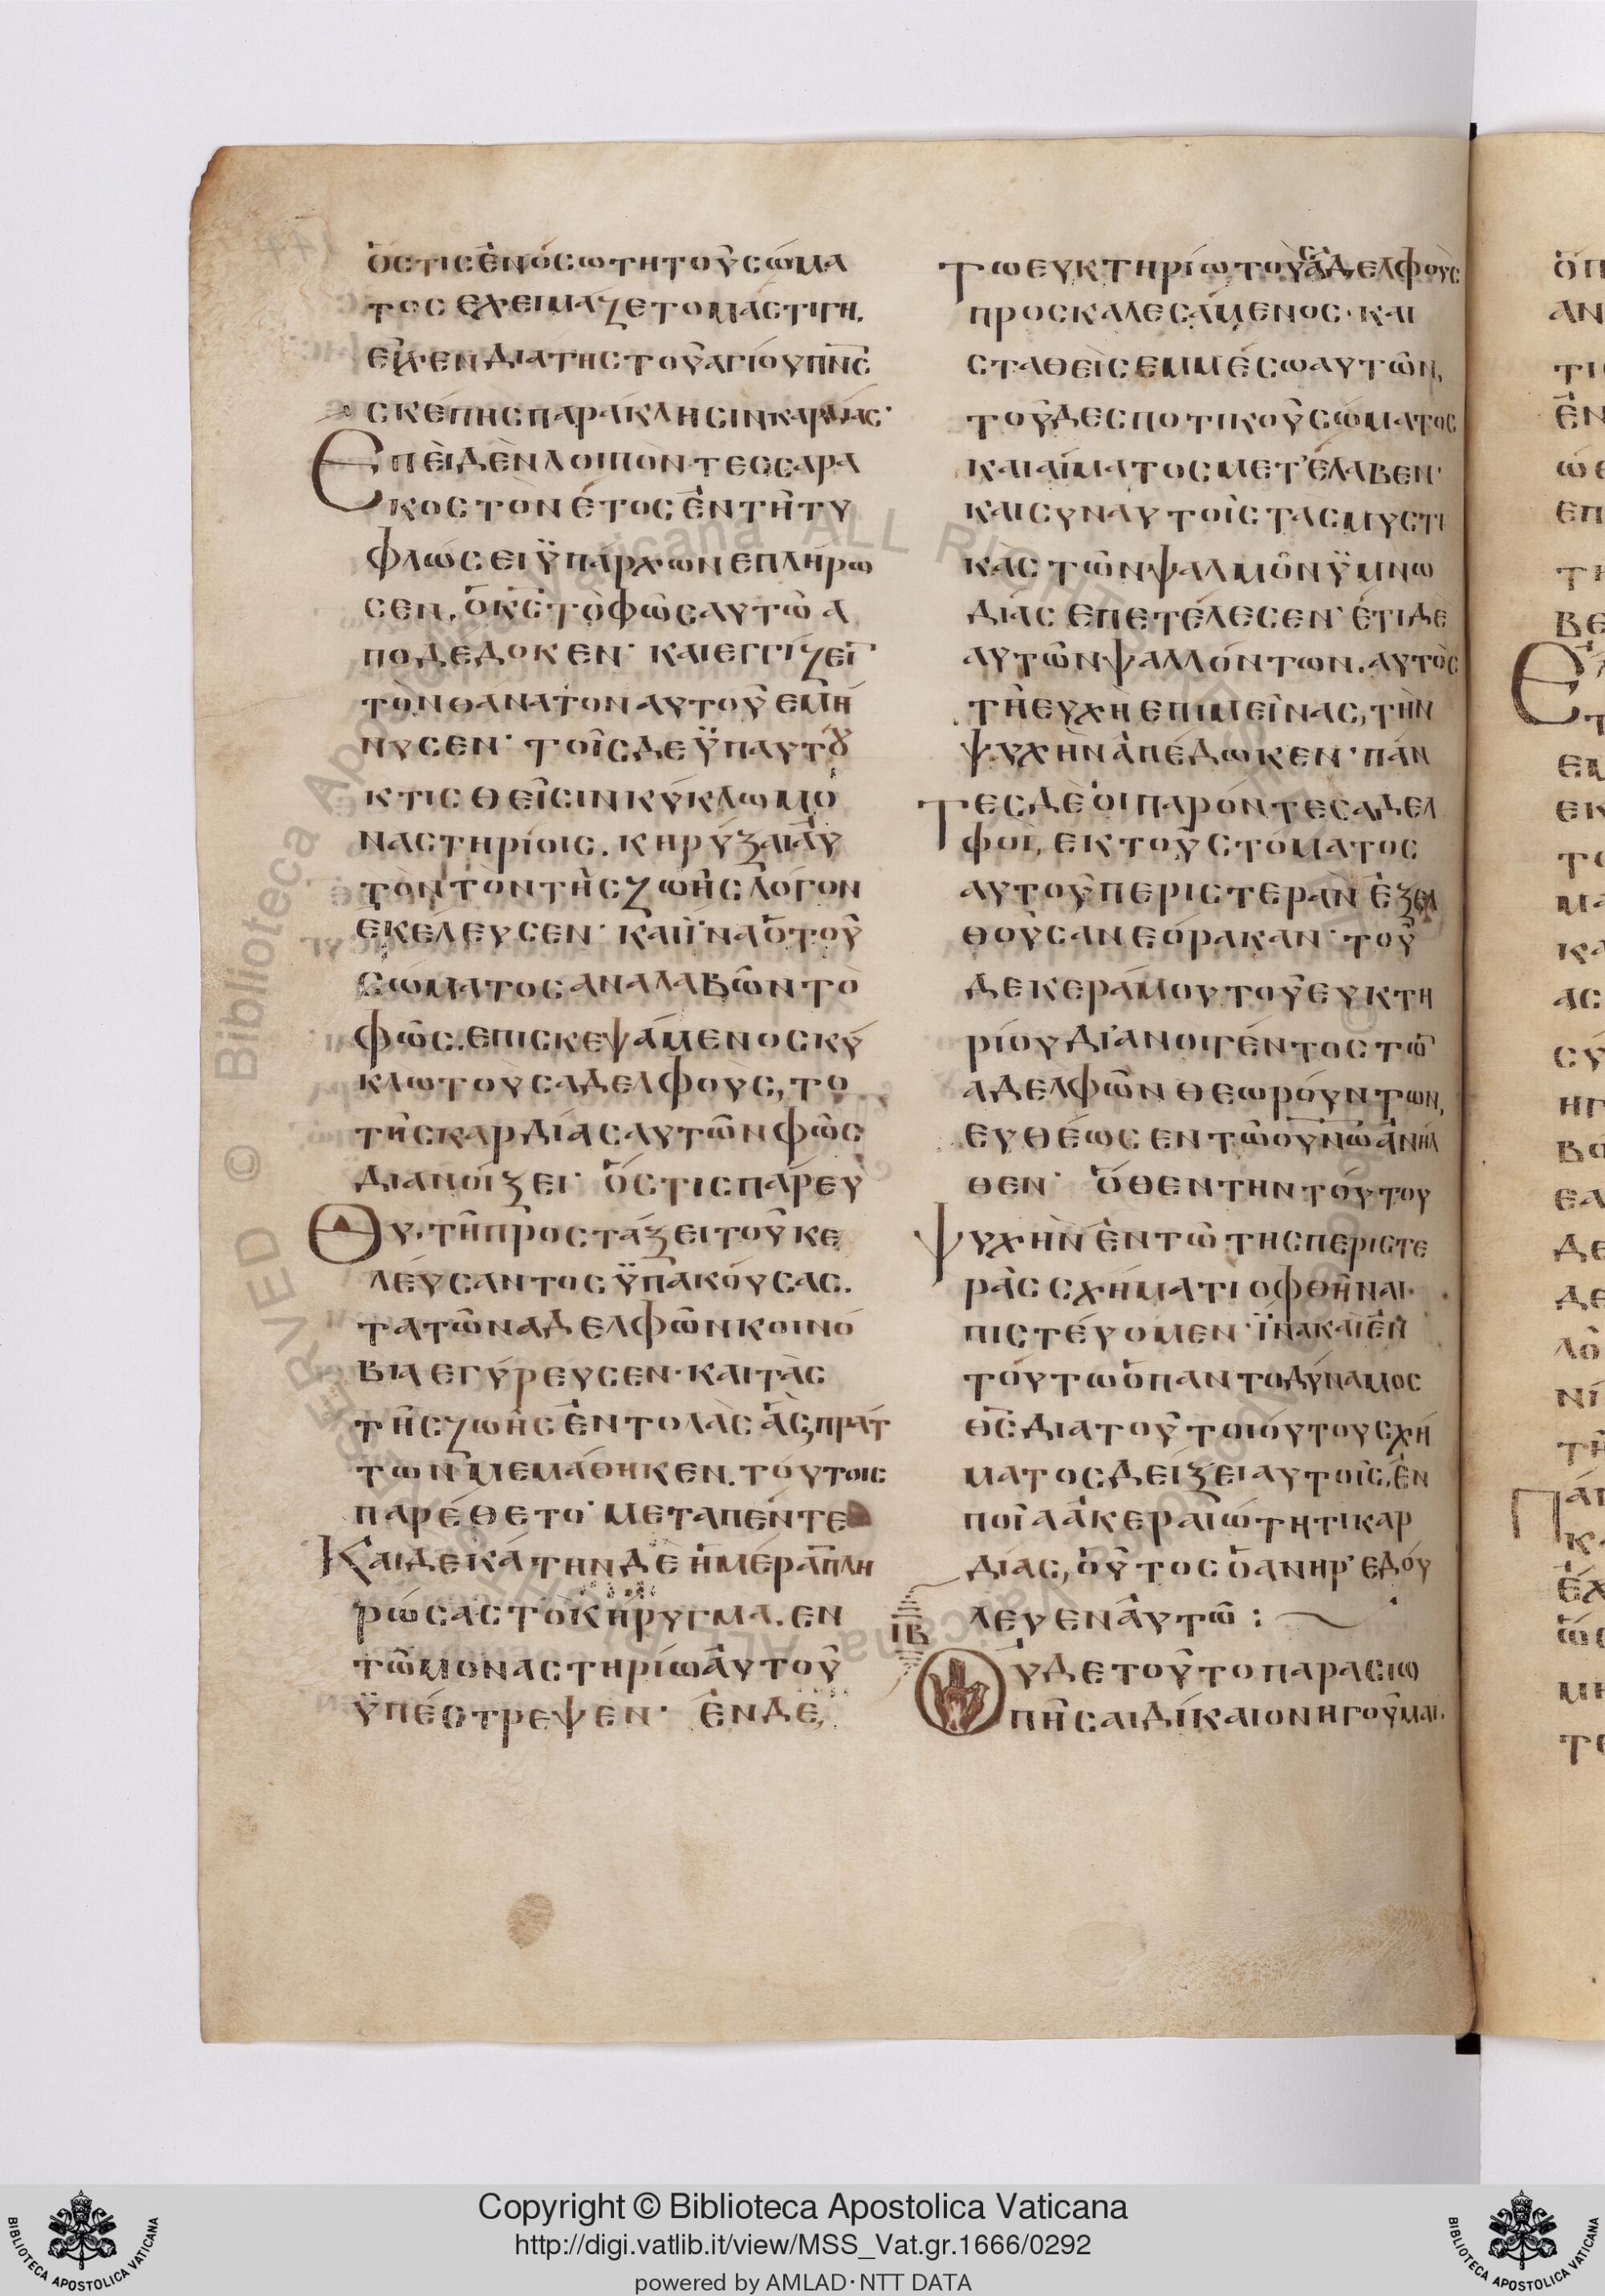 ὅστις ἐν ὅσω τῆ τοῦ σώμα
τος ἐχειμάζετο μάστιγη.
εἶχεν διὰ τῆς τοῦ ἁγίου πν̅ς̅
σκέπης παράκλησιν καρδίας·
Ἐπειδὲν λοιπὸν τεσσαρα
κοστὸν ἔτος ἐν τῆ τυ
φλώσει ϋπάρχων ἐπλήρω
σεν, ὁ κ̅ς̅ τὸ φῶς αυτῶ ἀ
ποδέδοκεν· και εγγίζει̅
τὸν θάνατον αυτοῦ ἐμή
νυσεν· τοῖς δε ϋπ αυτȣ
κτισθεῖσιν κύκλω μο
ναστηρίοις. κηρύξαι αυ
τὸν τὸν τῆς ζωῆς λόγον
ἐκέλευσεν· και ϊνα ὁ τοῦ
σώματος αναλαβῶν τὸ
φῶς. επισκεψάμενος κύ
κλω τοὺς αδελφοὺς, το
τῆς καρδίας αυτῶν φῶς
διανοίξει· ὅστις παρευ
Θυ· τῆ προστάξει τοῦ κε
λεύσαντος ϋπακούσας.
τα τῶν αδελφῶν κοινό
βια εγύρευσεν· και τὰς
τῆς ζωῆς ἐντολὰς ἃς πράτ
των μεμάθηκεν. τούτοις
παρέθετο· μετα πέντε
Και δεκάτην δὲ ἡμέρα̅ πλη
ρώσας τὸ κήρυγμα. εν
τῶ μοναστηρίω αὐτοῦ
ϋπέστρεψεν· ἐν δε
Τω ευκτηρίω τοὺς ἀδελφοὺς
προσκαλεσάμενος· και
σταθεὶς εμμέσω αυτῶν,
τοῦ δεσποτικοῦ σώματος
και αἵματος μετ'έλαβεν·
και συν αυτοῖς τας μυστι
κὰς τῶν ψαλμῶν ϋμνω
δίας επετέλεσεν· ἔτι δὲ
αυτῶν ψαλλόντων. αυτὸς
τῆ ευχῆ επιμεῖνας, τὴν
ψυχὴν ἀπέδωκεν· πάν
Τες δὲ ὁι παρόντες αδελ
φοὶ, εκ του στόματος
αυτοῦ περιστερὰν ἐξελ
θοῦσαν εόρακαν· τοῦ
δε κεράμου τοῦ ευκτη
ρίου δι'ανοιγέντος τῶ̅
αδελφῶν θεωρούντων,
ευθέως εν τῶ ου̅νω̅ ἀνῆλ
θεν· ὅθεν την τούτου
Ψυχὴν ἐν τῶ της περιστε
ρὰς σχήματι οφθῆναι·
πιστέυομεν· ϊνα και ἐν
τούτω ὁ παντοδύναμος
θ̅ς̅ δια τοῦ τοιούτου σχή
ματος δείξει αυτοῖς. ἐν
ποῖα ἀκεραιώτητι καρ
δίας, οὗτος ὁ ανηρ' εδού
λευεν αὐτῶ :
ΙΒ
Ουδε τοῦτο παρασιω
πῆσαι δίκαιον ηγοῦμαι.
Copyright © Biblioteca Apostolica Vaticana
http://digi.vatlib.it/view/MSS_Vat.gr.1666/0292
powered by AMLAD·NTT DATA
BIBLIOTECA APOSTOLICA VATICANA
BIBLIOTECA APOSTOLICA VATICANA